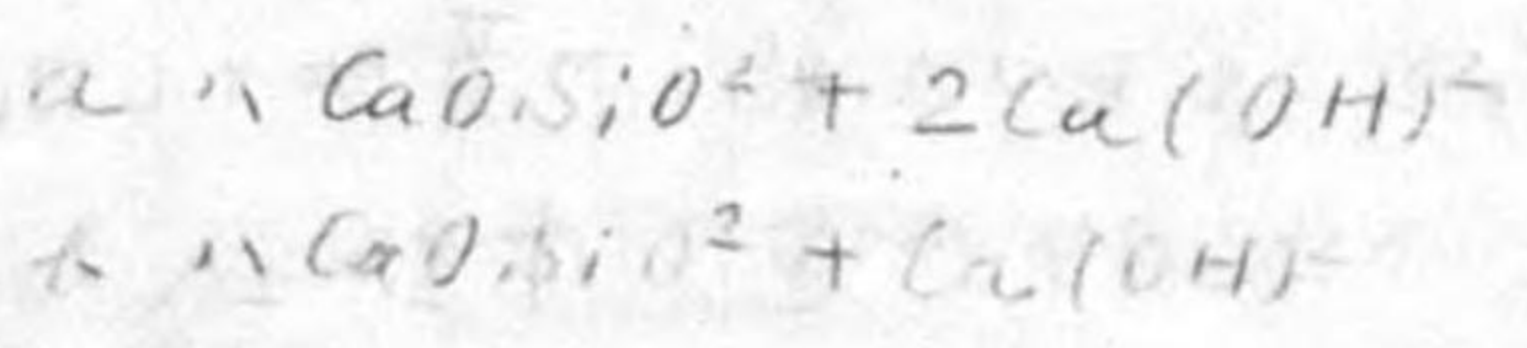 a " CaO.SiO² + 2Ca(OH)²
" CaO.SiO² + Ca(OH)²